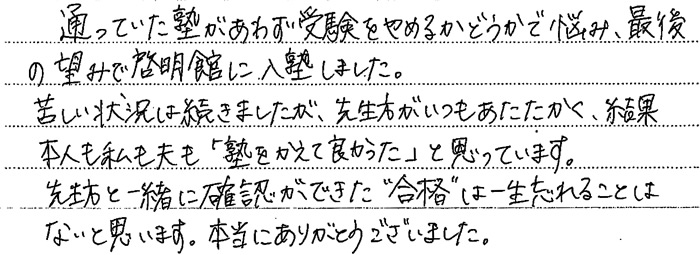 通っていた塾があわず受験をやめるかどうかで悩み、最後
の望みで啓明館に入塾しました。
苦しい状況は続きましたが、先生方がいつもあたたかく、結果
本人も私も夫も「塾をかえて良かった」と思っています。
先生方と一緒に確認ができた"合格"は一生忘れることは
ないと思います。本当にありがとうございました。